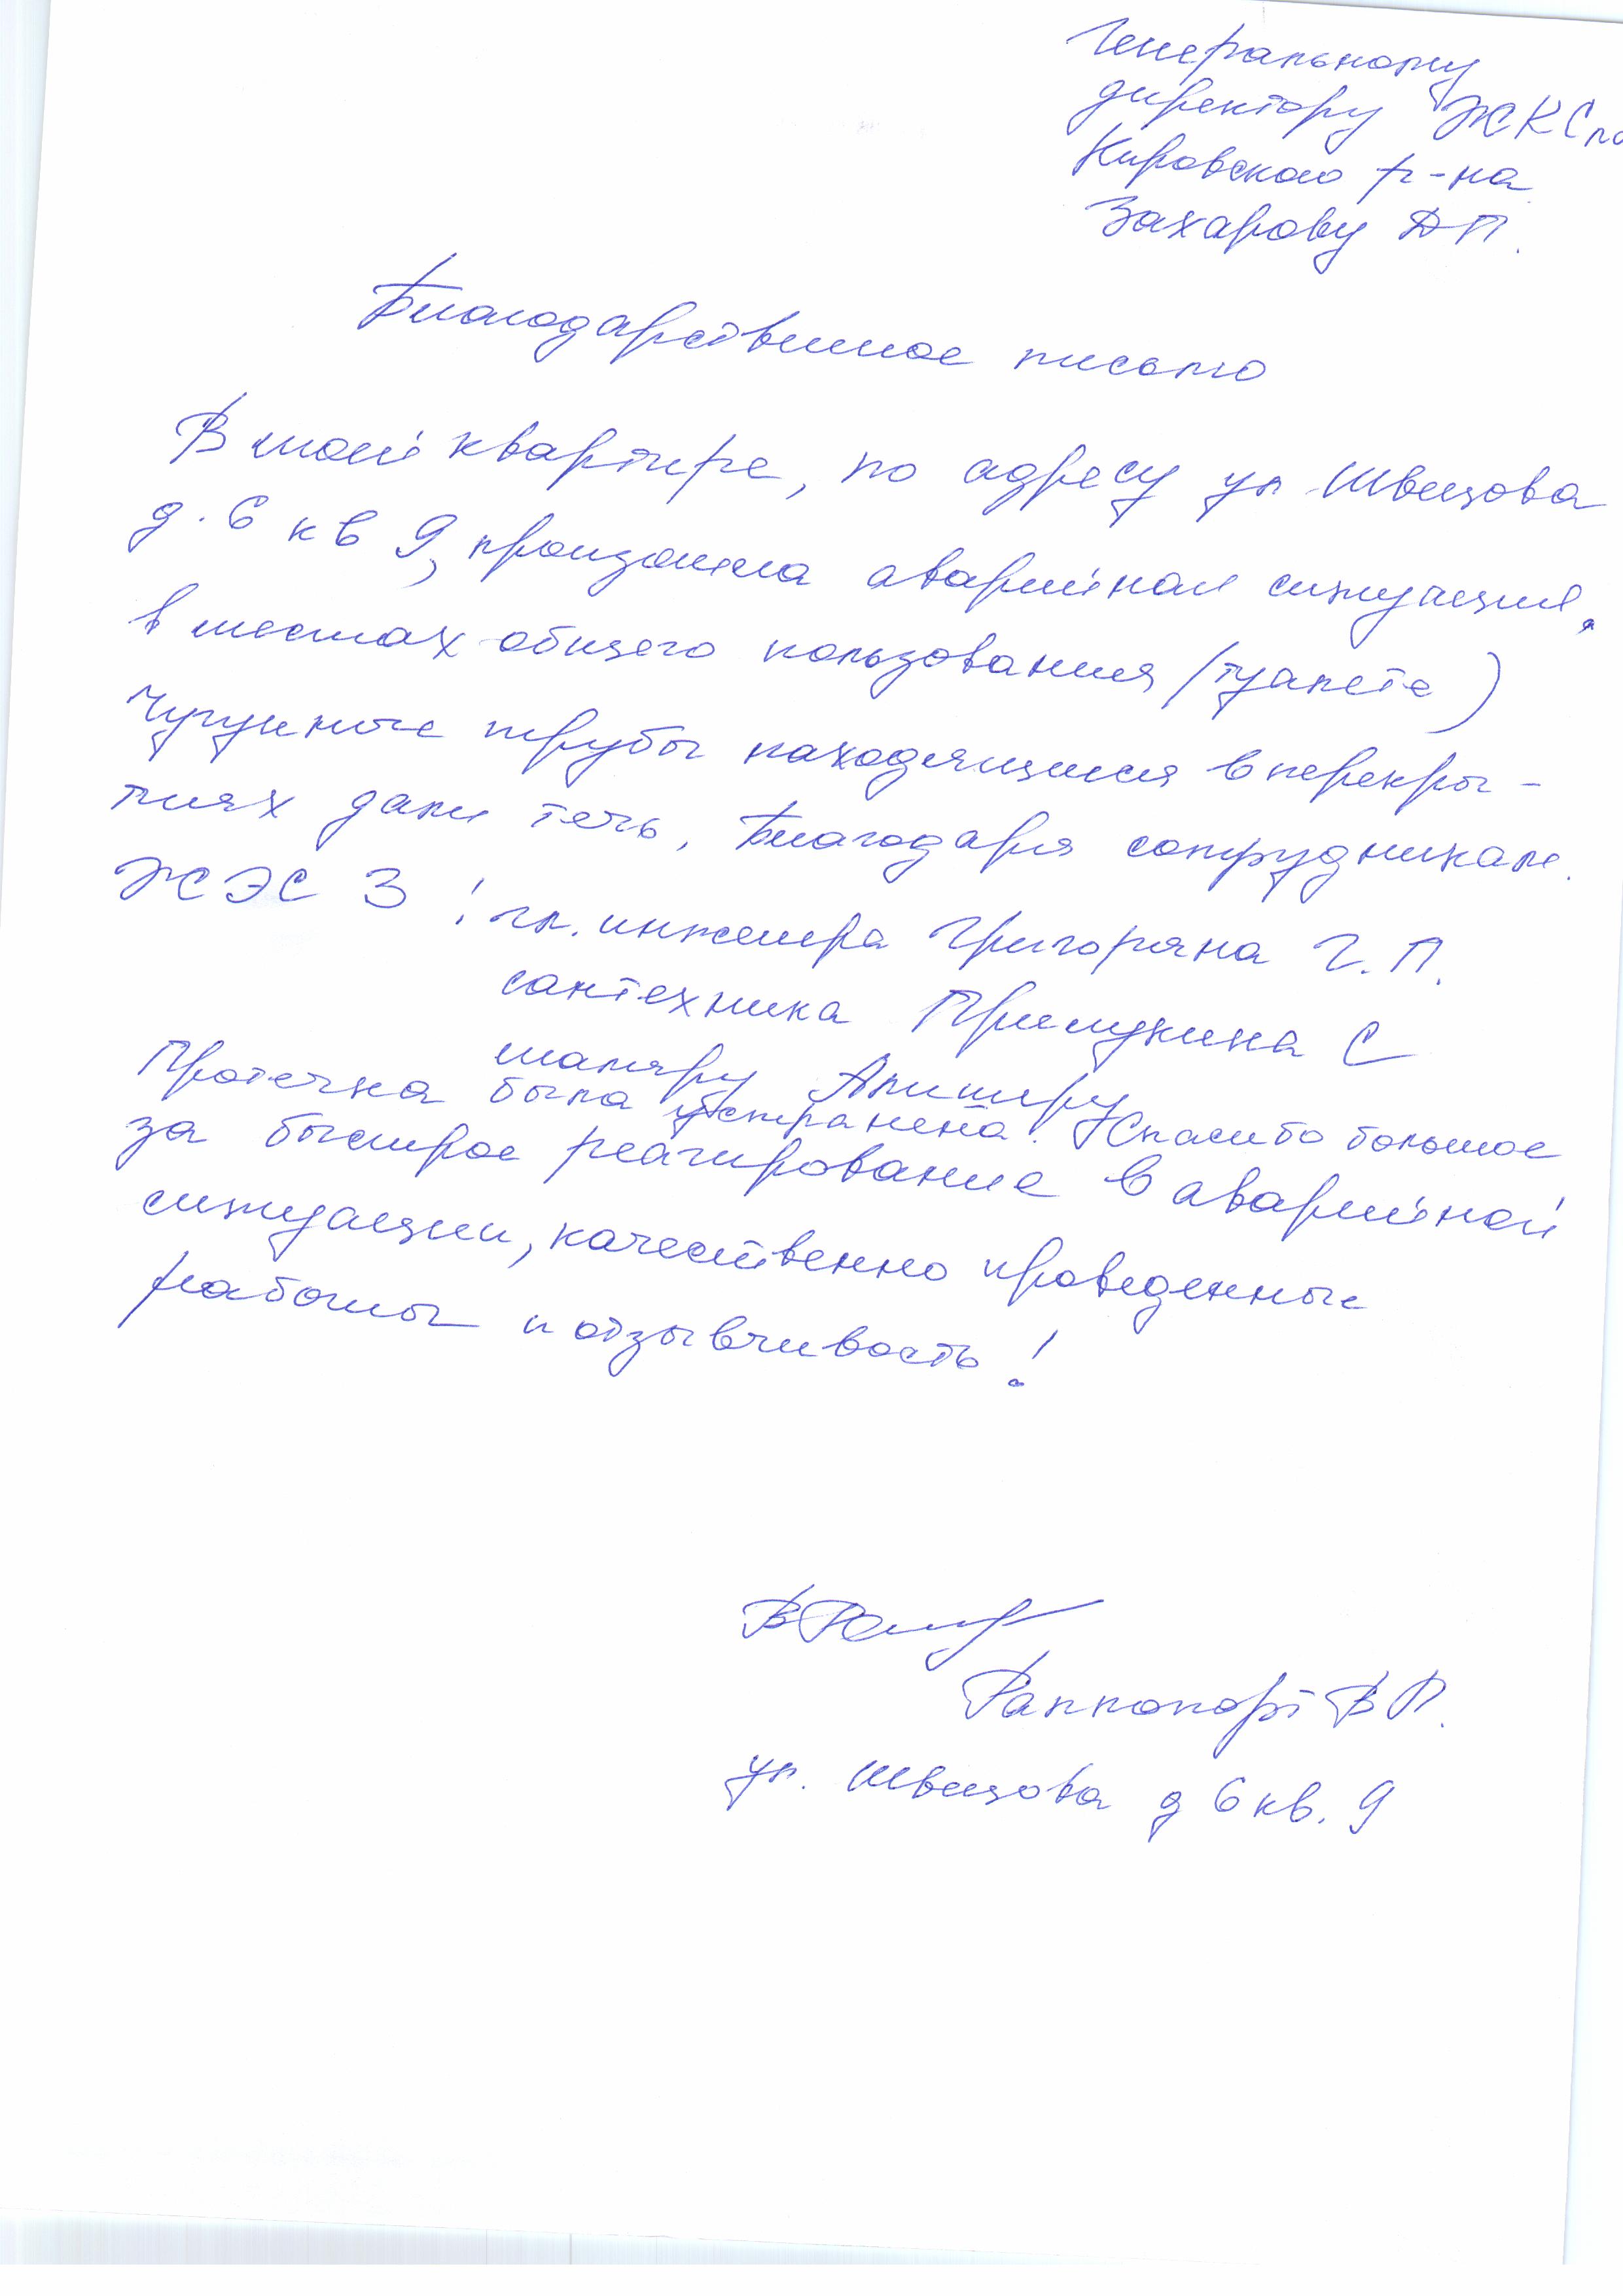 Генеральному
директору ЖКС по
Кировского р-на
Захарову А П.
Благодарственное письмо
В моей квартире, по адресу ул Швецова
д. 6 кв 9, произошла аварийная ситуация,
в местах общего пользования (туалете)
Чугунные трубы находящиеся в перекры-
тиях дали течь, Благодаря сотрудникам.
ЖЭС 3 : гл. инженера Григоряна Г. П.
сантехника Примукина С
маляру Алишеру
Протечка была устранена. Спасибо большое
за быстрое реагирование в аварийной
ситуации, качественно проведенные
работы и отзывчивость!
Раппопорт В П.
ул. Швецова д 6 кв. 9